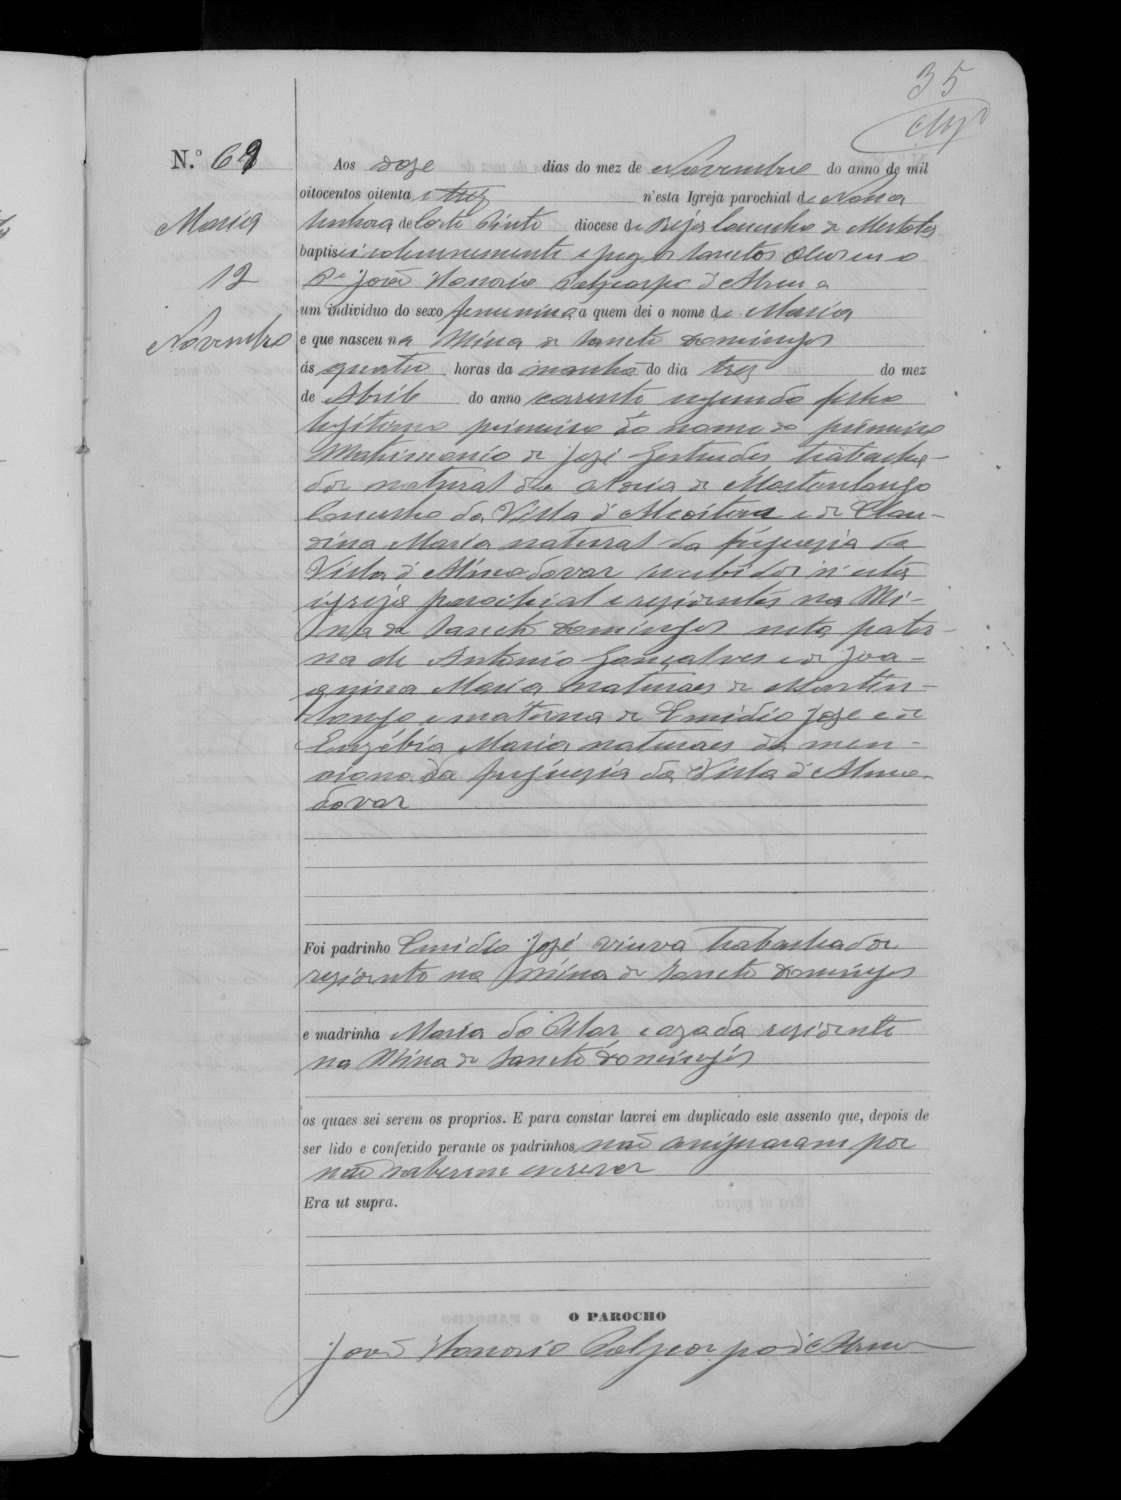 35
N.º 69
Aos doze dias do mez de Novembro do anno de mil
oitocentos oitenta e trez n'esta Igreja parochial de Nossa
Maria
Senhora de Corte Pinto diocese de Beja Concelho de Mertola
baptisei solemnemente e puz os sanctos Oleos eu o
12
P.e João Honorio Polycarpo d'Abreu a
um individuo do sexo feminino a quem dei o nome de Maria
Novembro
e que nasceu na Mina de Sancto Domingos
ás quatro horas da manhã do dia trez do mez
de Abril do anno corrente segundo filho
legitimo primeiro do nome do primeiro
Matrimonio de José Gertrudes trabalha-
dor natural da aldeia de Martenlongo
Concelho da Villa d'Alcoitem e de Clau-
dina Maria natural da freguezia da
Villa d'Almodovar recebidos n'esta
igreja parochial e rezidentes na Mi-
na de Sancto Domingos neta pater-
na de Antonio Gonçalves e de Joa-
quina Maria naturaes de Martin-
longo e materna de Emidio Joze e de
Euzébia Maria naturaes da men-
cionada freguezia da Villa d'Almo-
dovar
Foi padrinho Emidio José viuvo trabalhador
rezidente na Mina de Sancto Domingos
e madrinha Maria do Pilar cazada rezidente
na Mina de Sancto Domingos
os quaes sei serem os proprios. E para constar lavrei em duplicado este assento que, depois de
ser lido e conferido perante os padrinhos, não assignaram por
não saberem escrever
Era ut supra.
O PAROCHO
João Honorio Polycarpo d'Abreu